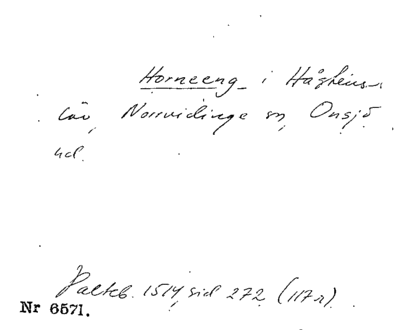 Horneeng i Håghens-
löv, Norrvidinge sn, Onsjö
hd.
Palteb. 1514, sid 272 (117 r).
Nr 6571.